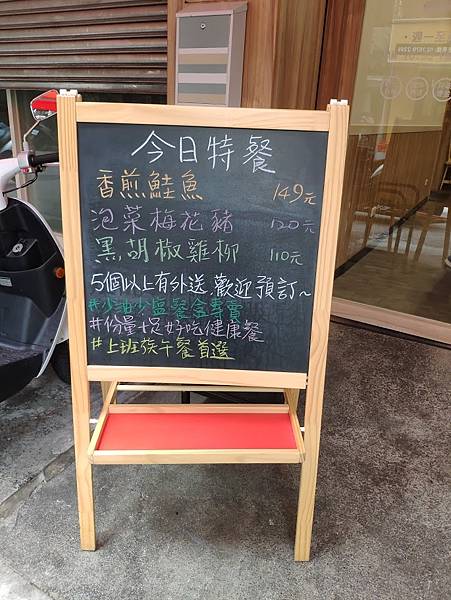 今日特餐
香煎鮭魚 149元
泡菜梅花豬 120元
黑胡椒雞柳 110元
5個以上有外送,歡迎預訂~
#少油少鹽餐盒專賣
#份量十足好吃健康餐
#上班族午餐首選